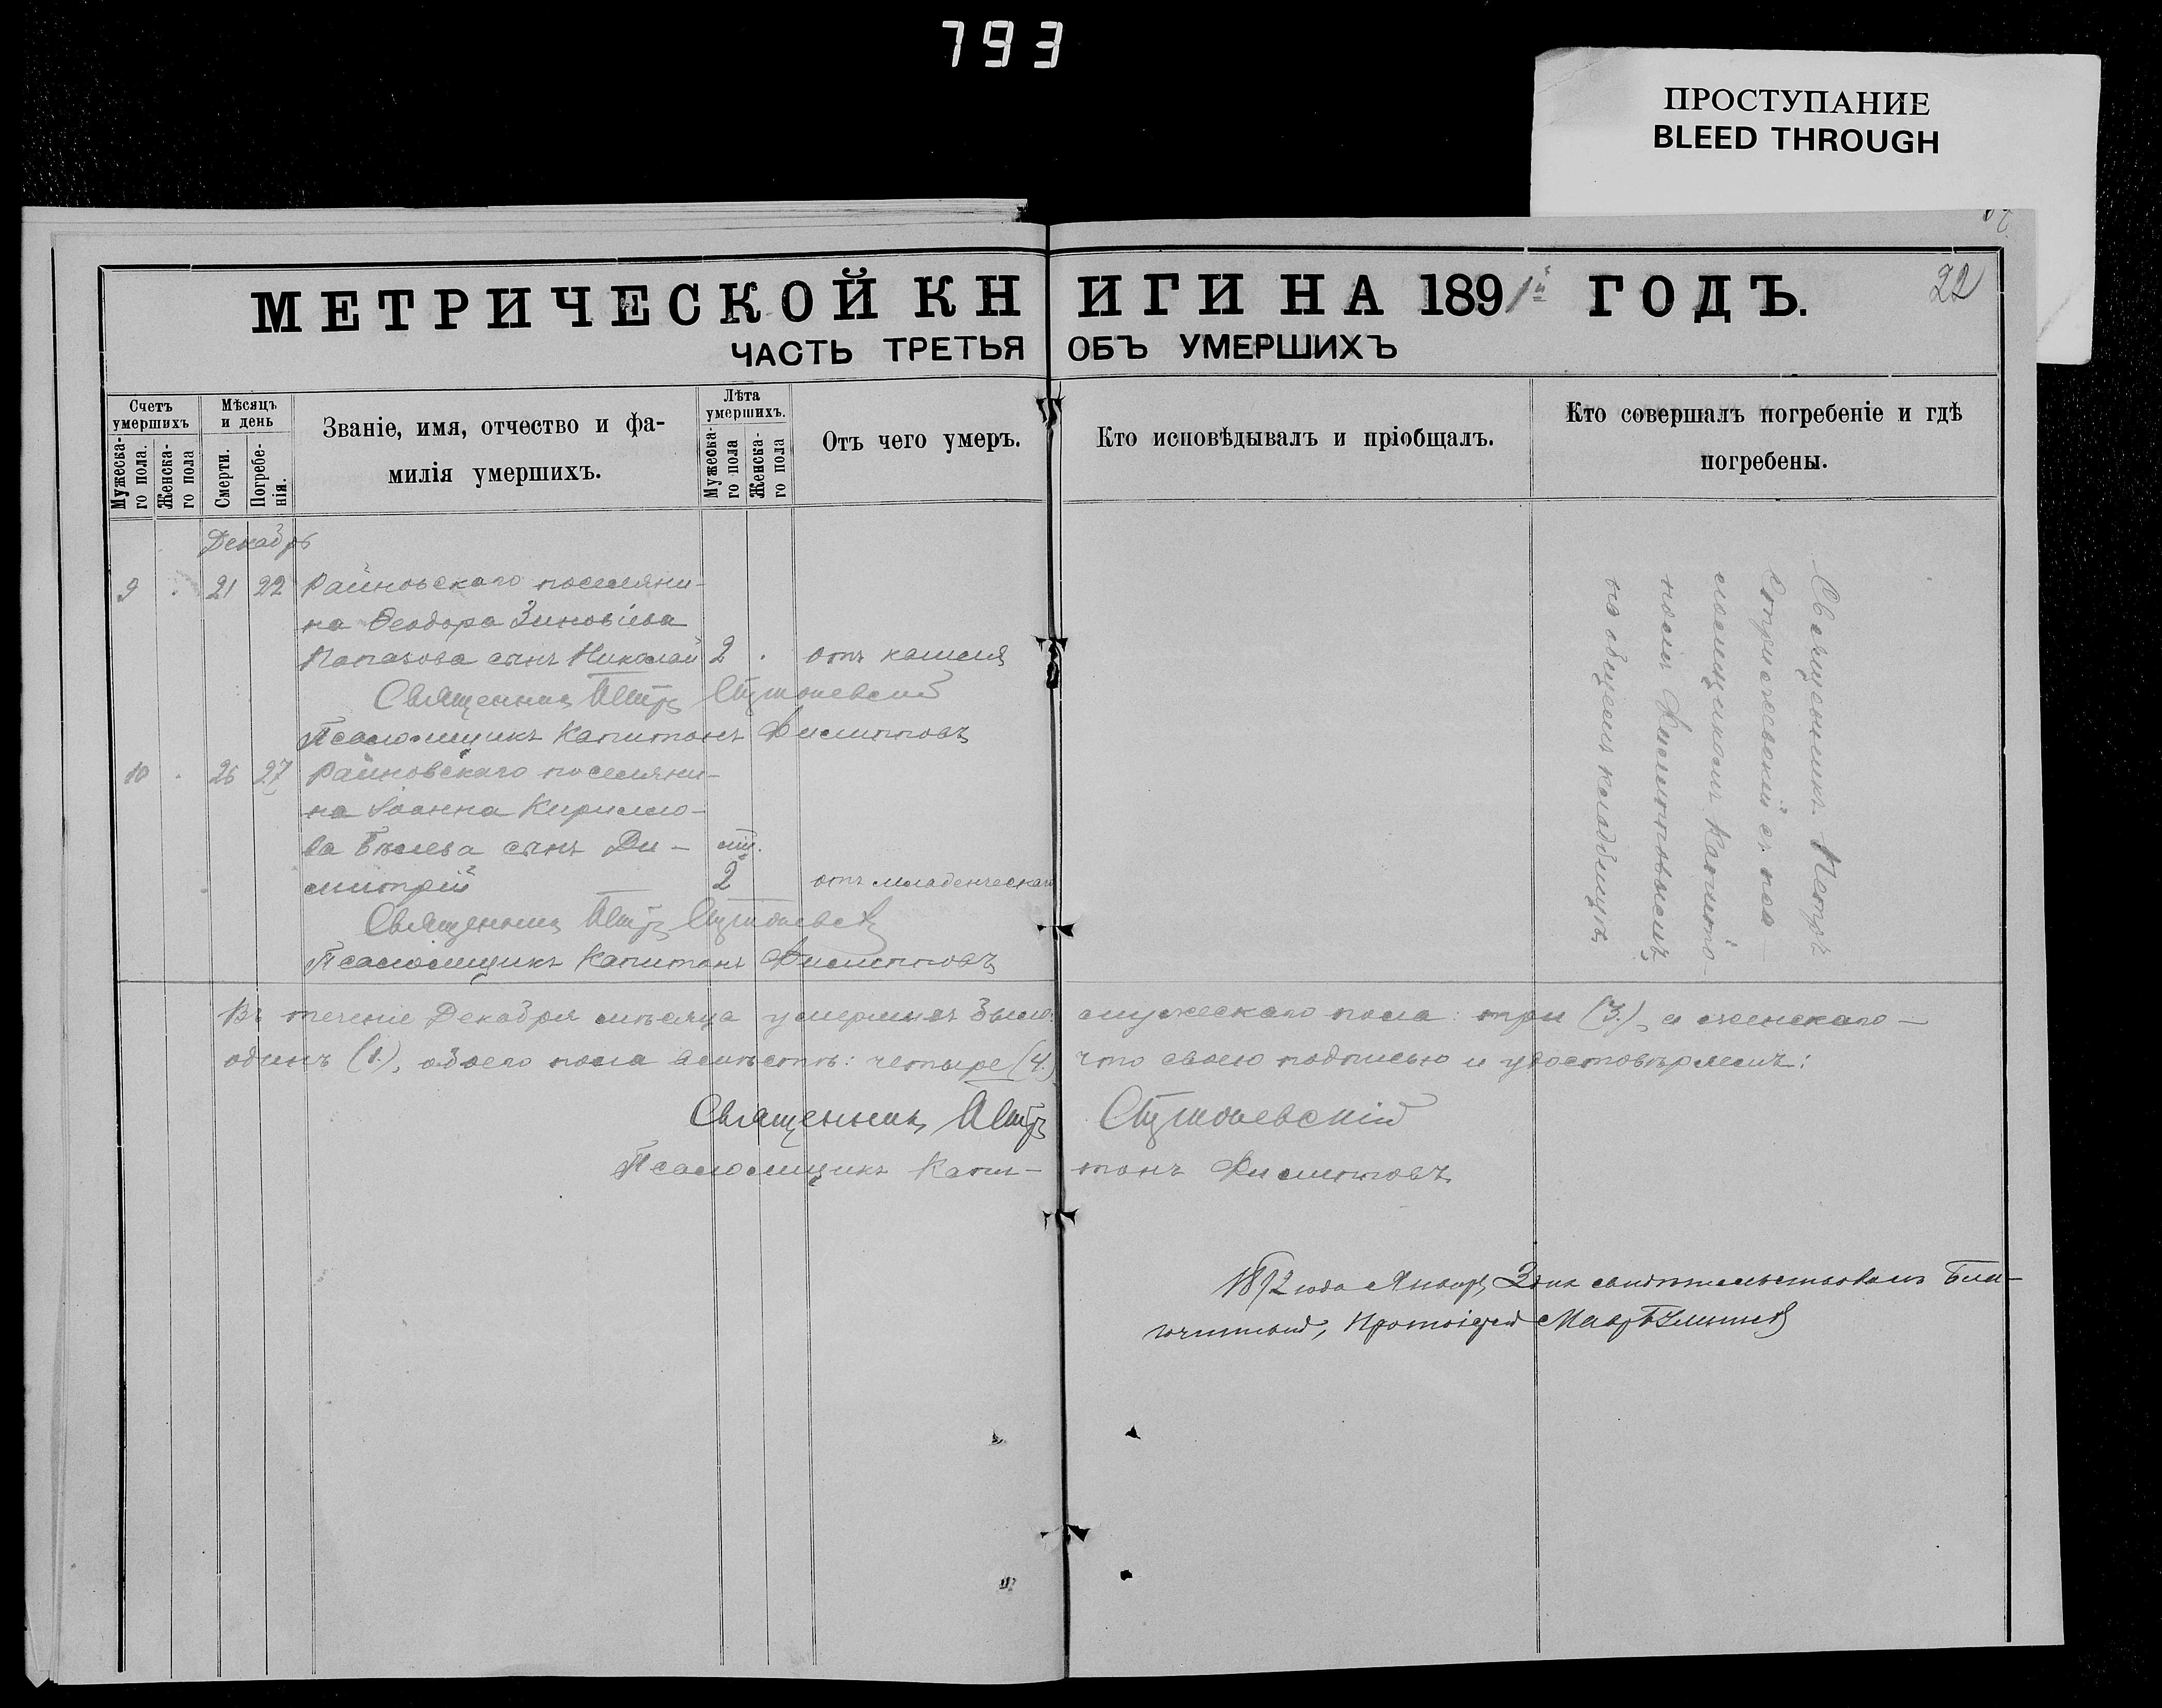 793
ПРОСТУПАНИЕ
BLEED THROUGH
22
МЕТРИЧЕСКОЙ КНИГИ НА 1891й ГОДЪ.
ЧАСТЬ ТРЕТЬЯ ОБЪ УМЕРШИХЪ
Счетъ умершихъ
Мужеска-го пола.
Женска-го пола
Мѣсяцъ и день
Смерти.
Погребе-нія.
Званіе, имя, отчество и фа-
милія умершихъ.
Лѣта умершихъ.
Мужеска-го пола
Женска-го пола
Отъ чего умеръ.
Кто исповѣдывалъ и пріобщалъ.
Кто совершалъ погребеніе и гдѣ
погребены.
Декабрь
9 21 22 Райновскаго поселяни-
на Ѳеодора Зиновіева
Папазова сынъ Николай 2 отъ кашля
Священникъ Петръ
Псаломщикъ Капитонъ Филипповъ
10 26 27 Райновскаго поселяни-
на Іоанна Кирилло-
ва Бѣлева сынъ Ди-
митрій 2 отъ младенческой
Священникъ Петръ
Псаломщикъ Капитонъ Филипповъ
Священникъ Петръ
с. пса-
ломщикомъ Капито-
номъ Филипповымъ
на общемъ кладбищѣ
Въ теченіе Декабря мѣсяца умершихъ было: мужескаго пола: три (3.), а женскаго-
одинъ (1.), обоего пола вмѣстѣ: четыре (4.) что своею подписью и удостовѣряемъ:
Священникъ Петръ
Псаломщикъ Капи-тонъ Филипповъ
1892 года Января 3 дня свидѣтельствовалъ Бла-
гочинный, Протоіерей